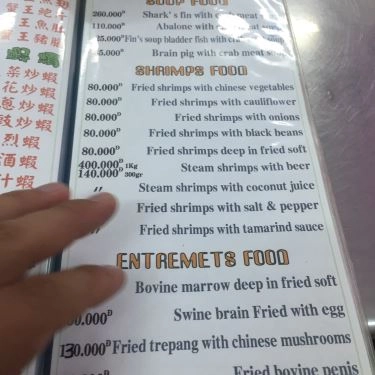 SOUP FOOD
260.000Đ Shark's fin with crab meat
110.000Đ Abalone with crab meat
Fin's soup bladder fish with
Brain pig with crab meat soup
SHRIMPS FOOD
80.000Đ Fried shrimps with chinese vegetables
80.000Đ Fried shrimps with cauliflower
80.000Đ Fried shrimps with onions
80.000Đ Fried shrimps with black beans
80.000Đ Fried shrimps deep in fried soft
400.000Đ 1Kg
140.000Đ 300gr Steam shrimps with beer
〃 Steam shrimps with coconut juice
Fried shrimps with salt & pepper
〃 Fried shrimps with tamarind sauce
ENTREMETS FOOD
Bovine marrow deep in fried soft
Swine brain Fried with egg
130.000Đ Fried trepang with chinese mushrooms
Fried bovine penis
蟹王魚肚
蟹王豬腦
菜炒蝦
花炒蝦
蔥炒蝦
豉炒蝦
烈蝦
酒蝦
汁蝦